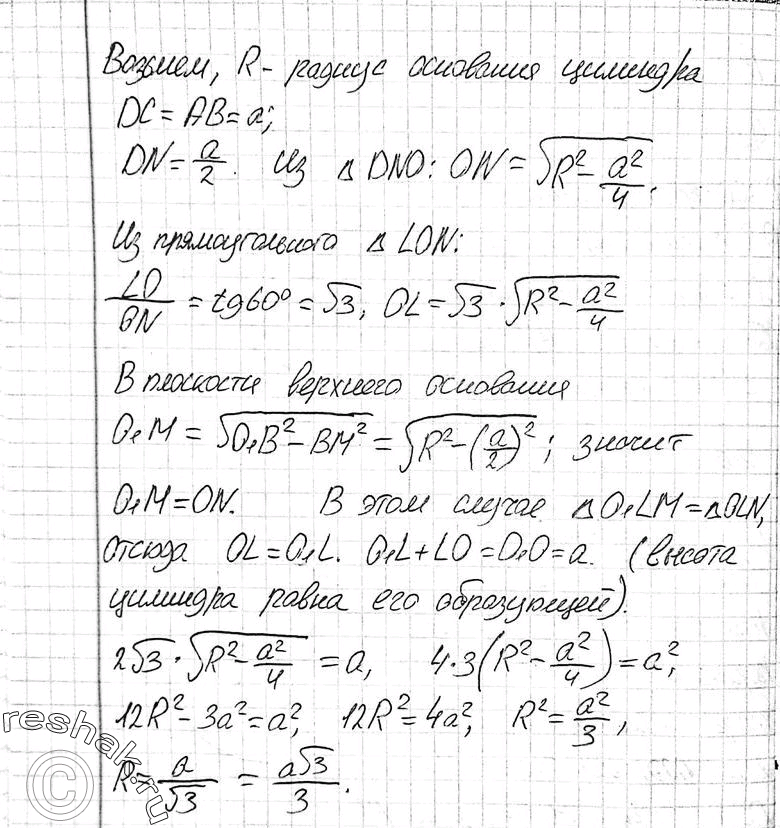 Возьмем, R - радиус основания цилиндра
DC = AB = a;
DN = a/2. Из △ DNO: ON = √(R² - a²/4).
Из прямоугольного △ LON:
LO/ON = tg60° = √3, OL = √3 · √(R² - a²/4)
В плоскости верхнего основания
O₁M = √(O₁B² - BM²) = √(R² - (a/2)²); значит
O₁M = ON. В этом случае △O₁LM = △OLN,
отсюда OL = O₁L. O₁L + LO = O₁O = a. (высота
цилиндра равна его образующей).
2√3 · √(R² - a²/4) = a, 4·3(R² - a²/4) = a²,
12R² - 3a² = a², 12R² = 4a², R² = a²/3,
R = a/√3 = a√3/3.
reshak.ru
©